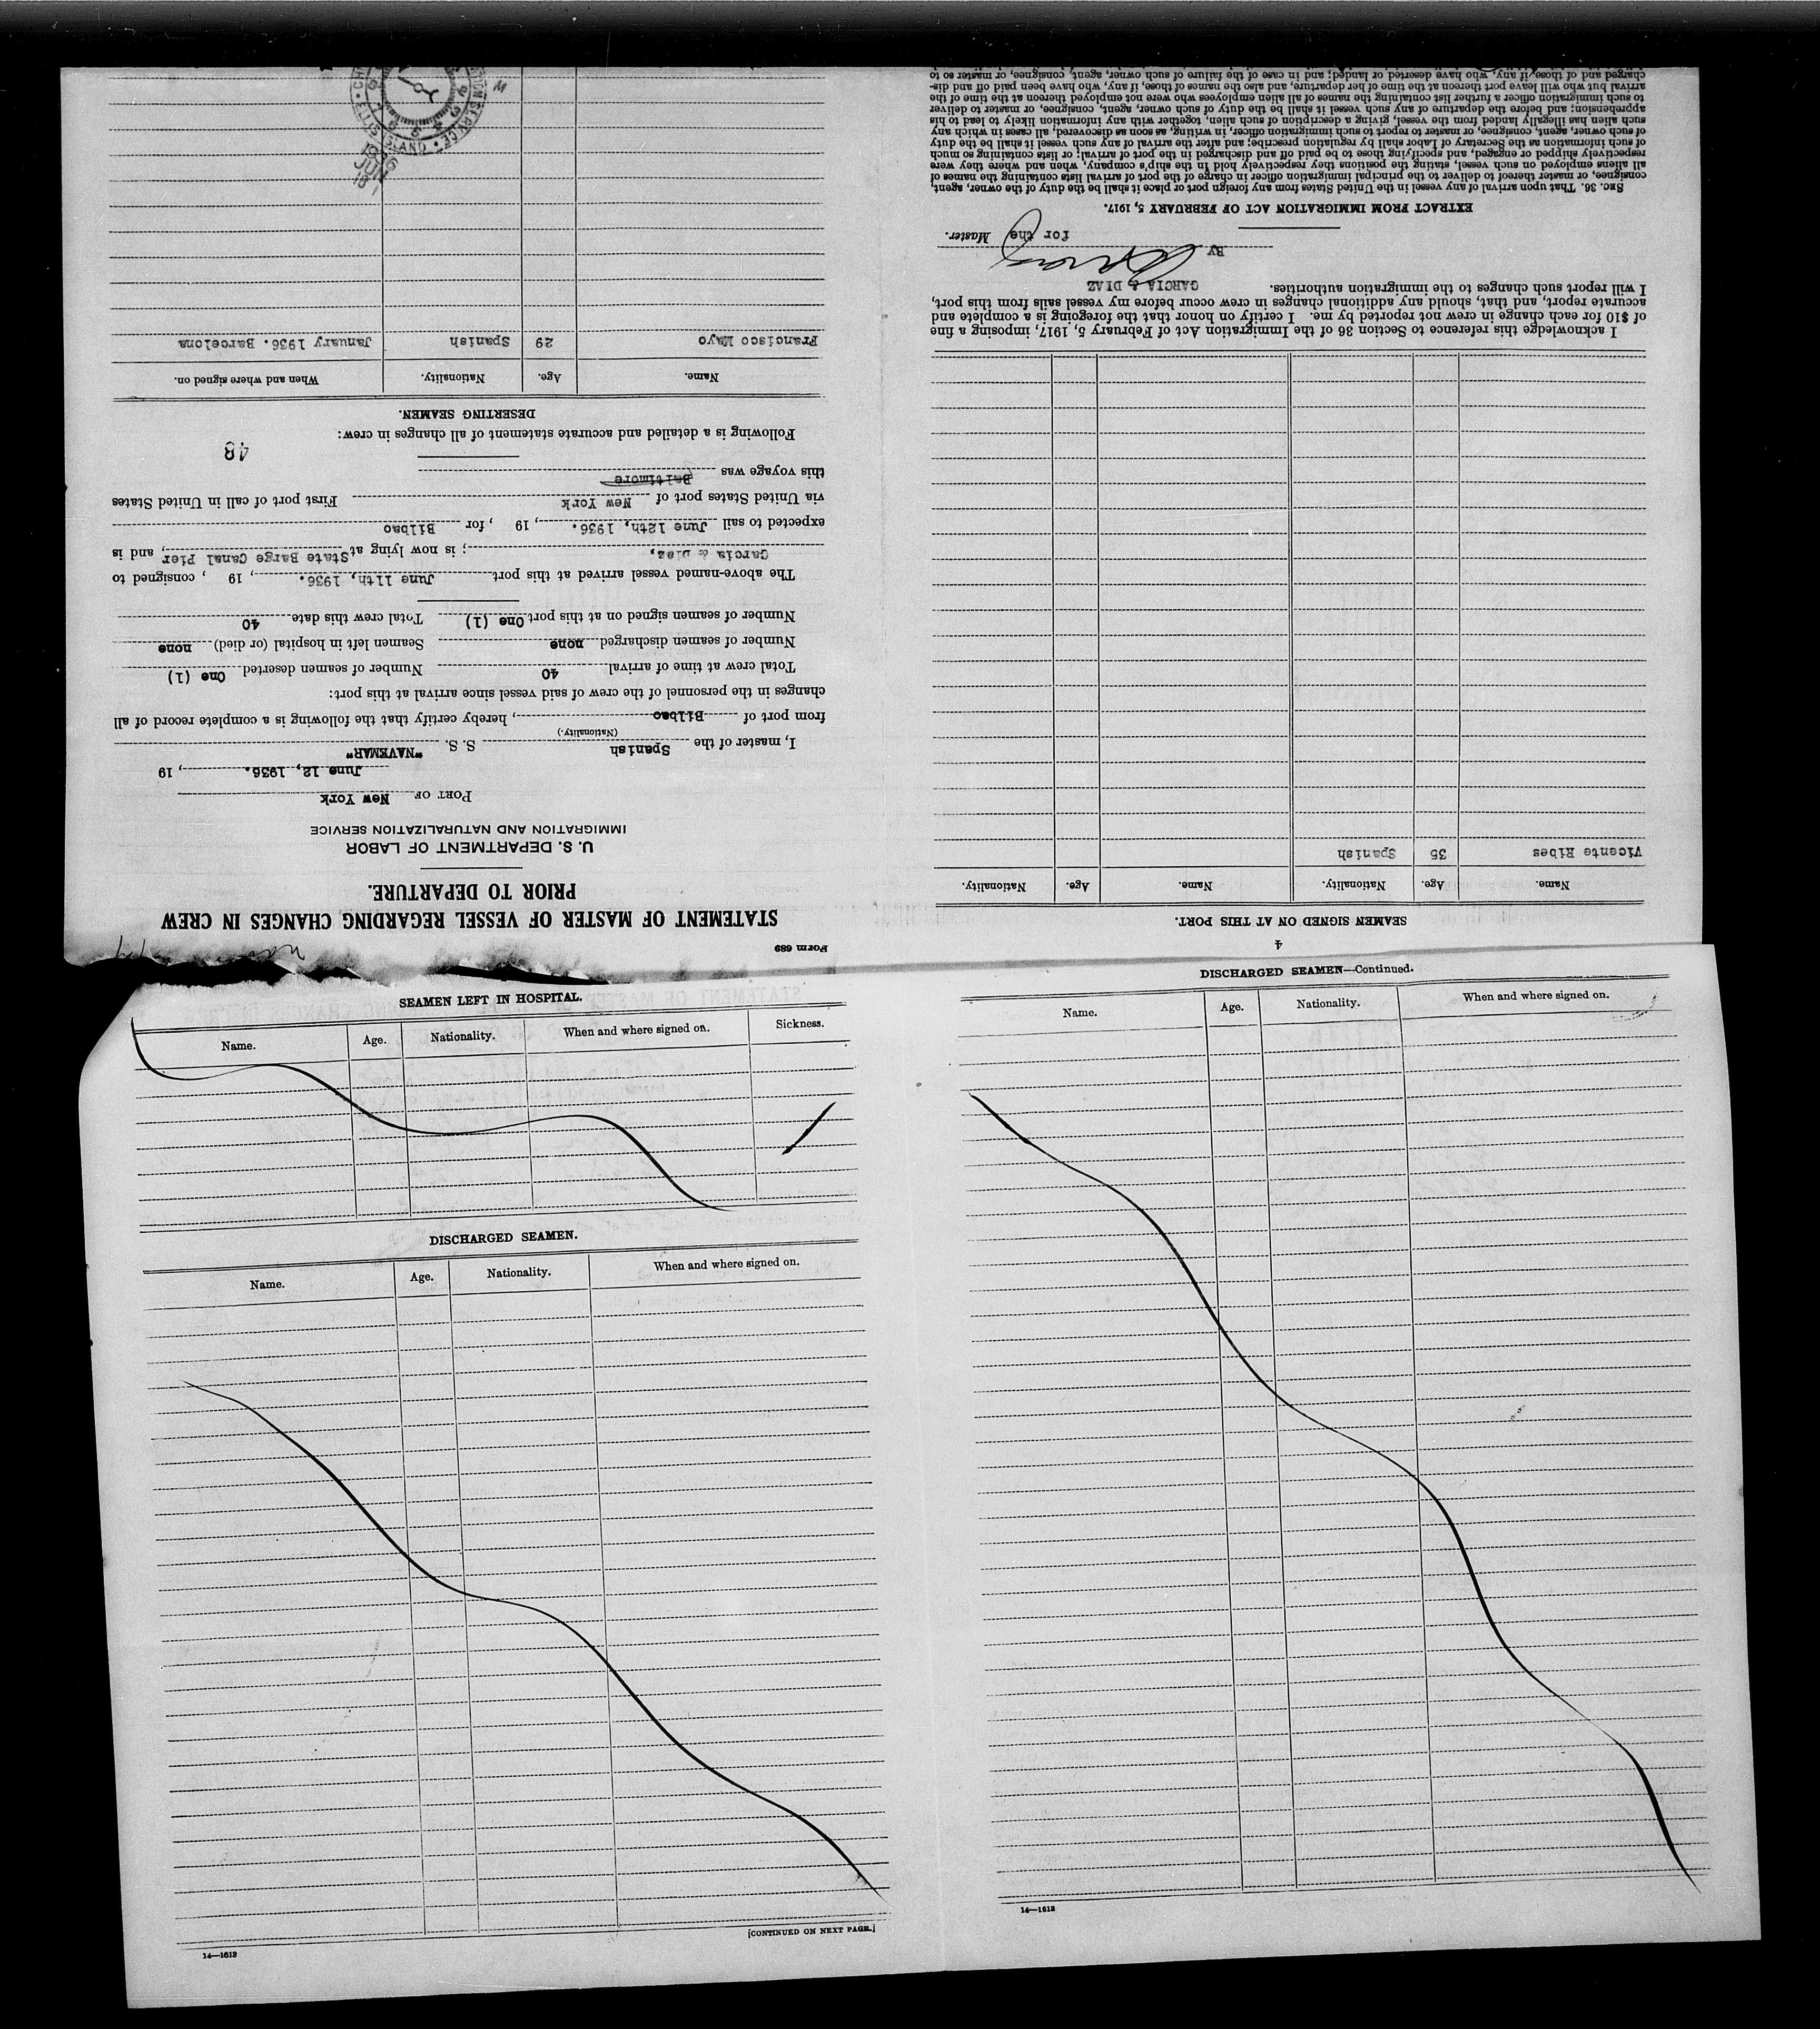 Form 689
STATEMENT OF MASTER OF VESSEL REGARDING CHANGES IN CREW
PRIOR TO DEPARTURE.
U. S. DEPARTMENT OF LABOR
IMMIGRATION AND NATURALIZATION SERVICE
PORT OF New York
June 12, 1936. , 19
I, master of the Spanish S. S. "NAVEMAR"
(Nationality.)
from port of Bilbao, hereby certify that the following is a complete record of all
changes in the personnel of the crew of said vessel since arrival at this port:
Total crew at time of arrival 40 Number of seamen deserted One (1)
Number of seamen discharged none Seamen left in hospital (or died) none
Number of seamen signed on at this port One (1) Total crew this date 40
The above-named vessel arrived at this port June 11th, 1936. , 19 , consigned to
Garcia & Diaz, ; is now lying at State Barge Canal Pier, and is
expected to sail June 12th, 1936. , 19 , for Bilbao
via United States port of New York First port of call in United States
this voyage was Baltimore
48
Following is a detailed and accurate statement of all changes in crew:
DESERTING SEAMEN.
Name. Age. Nationality. When and where signed on.
Francisco Mayo 29 Spanish January 1936. Barcelona
1936
JUN
18
ISLAND
4
SEAMEN SIGNED ON AT THIS PORT.
Name. Age. Nationality. Name. Age. Nationality.
Vicente Ribes 35 Spanish
I acknowledge this reference to Section 36 of the Immigration Act of February 5, 1917, imposing a fine
of $10 for each change in crew not reported by me. I certify on honor that the foregoing is a complete and
accurate report, and that, should any additional changes in crew occur before my vessel sails from this port,
I will report such changes to the immigration authorities.
GARCIA & DIAZ
By
for the Master.
EXTRACT FROM IMMIGRATION ACT OF FEBRUARY 5, 1917.
SEC. 36. That upon arrival of any vessel in the United States from any foreign port or place it shall be the duty of the owner, agent,
consignee, or master thereof to deliver to the principal immigration officer in charge of the port of arrival lists containing the names of
all aliens employed on such vessel, stating the positions they respectively hold in the ship's company, when and where they were
respectively shipped or engaged, and specifying those to be paid off and discharged in the port of arrival; or lists containing so much
of such information as the Secretary of Labor shall by regulation prescribe; and after the arrival of any such vessel it shall be the duty
of such owner, agent, consignee, or master to report to such immigration officer, in writing, as soon as discovered, all cases in which any
such alien has illegally landed from the vessel, giving a description of such alien, together with any information likely to lead to his
apprehension; and before the departure of any such vessel it shall be the duty of such owner, agent, consignee, or master to deliver
to such immigration officer a further list containing the names of all alien employees who were not employed thereon at the time of the
arrival but who will leave port thereon at the time of her departure, and also the names of those, if any, who have been paid off and dis-
charged and of those, if any, who have deserted or landed; and in case of the failure of such owner, agent, consignee, or master so to
SEAMEN LEFT IN HOSPITAL.
Name. Age. Nationality. When and where signed on. Sickness.
DISCHARGED SEAMEN.
Name. Age. Nationality. When and where signed on.
[CONTINUED ON NEXT PAGE.]
14—1613
DISCHARGED SEAMEN—Continued.
Name. Age. Nationality. When and where signed on.
14—1613